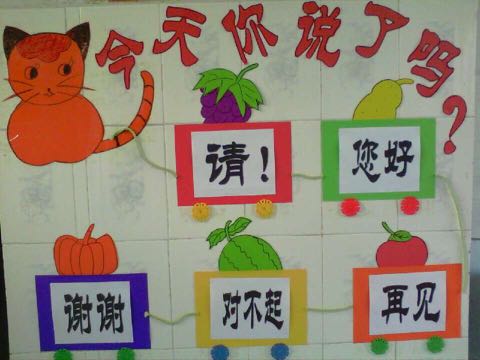 今天你说了吗?
请!
您好
谢谢
对不起
再见